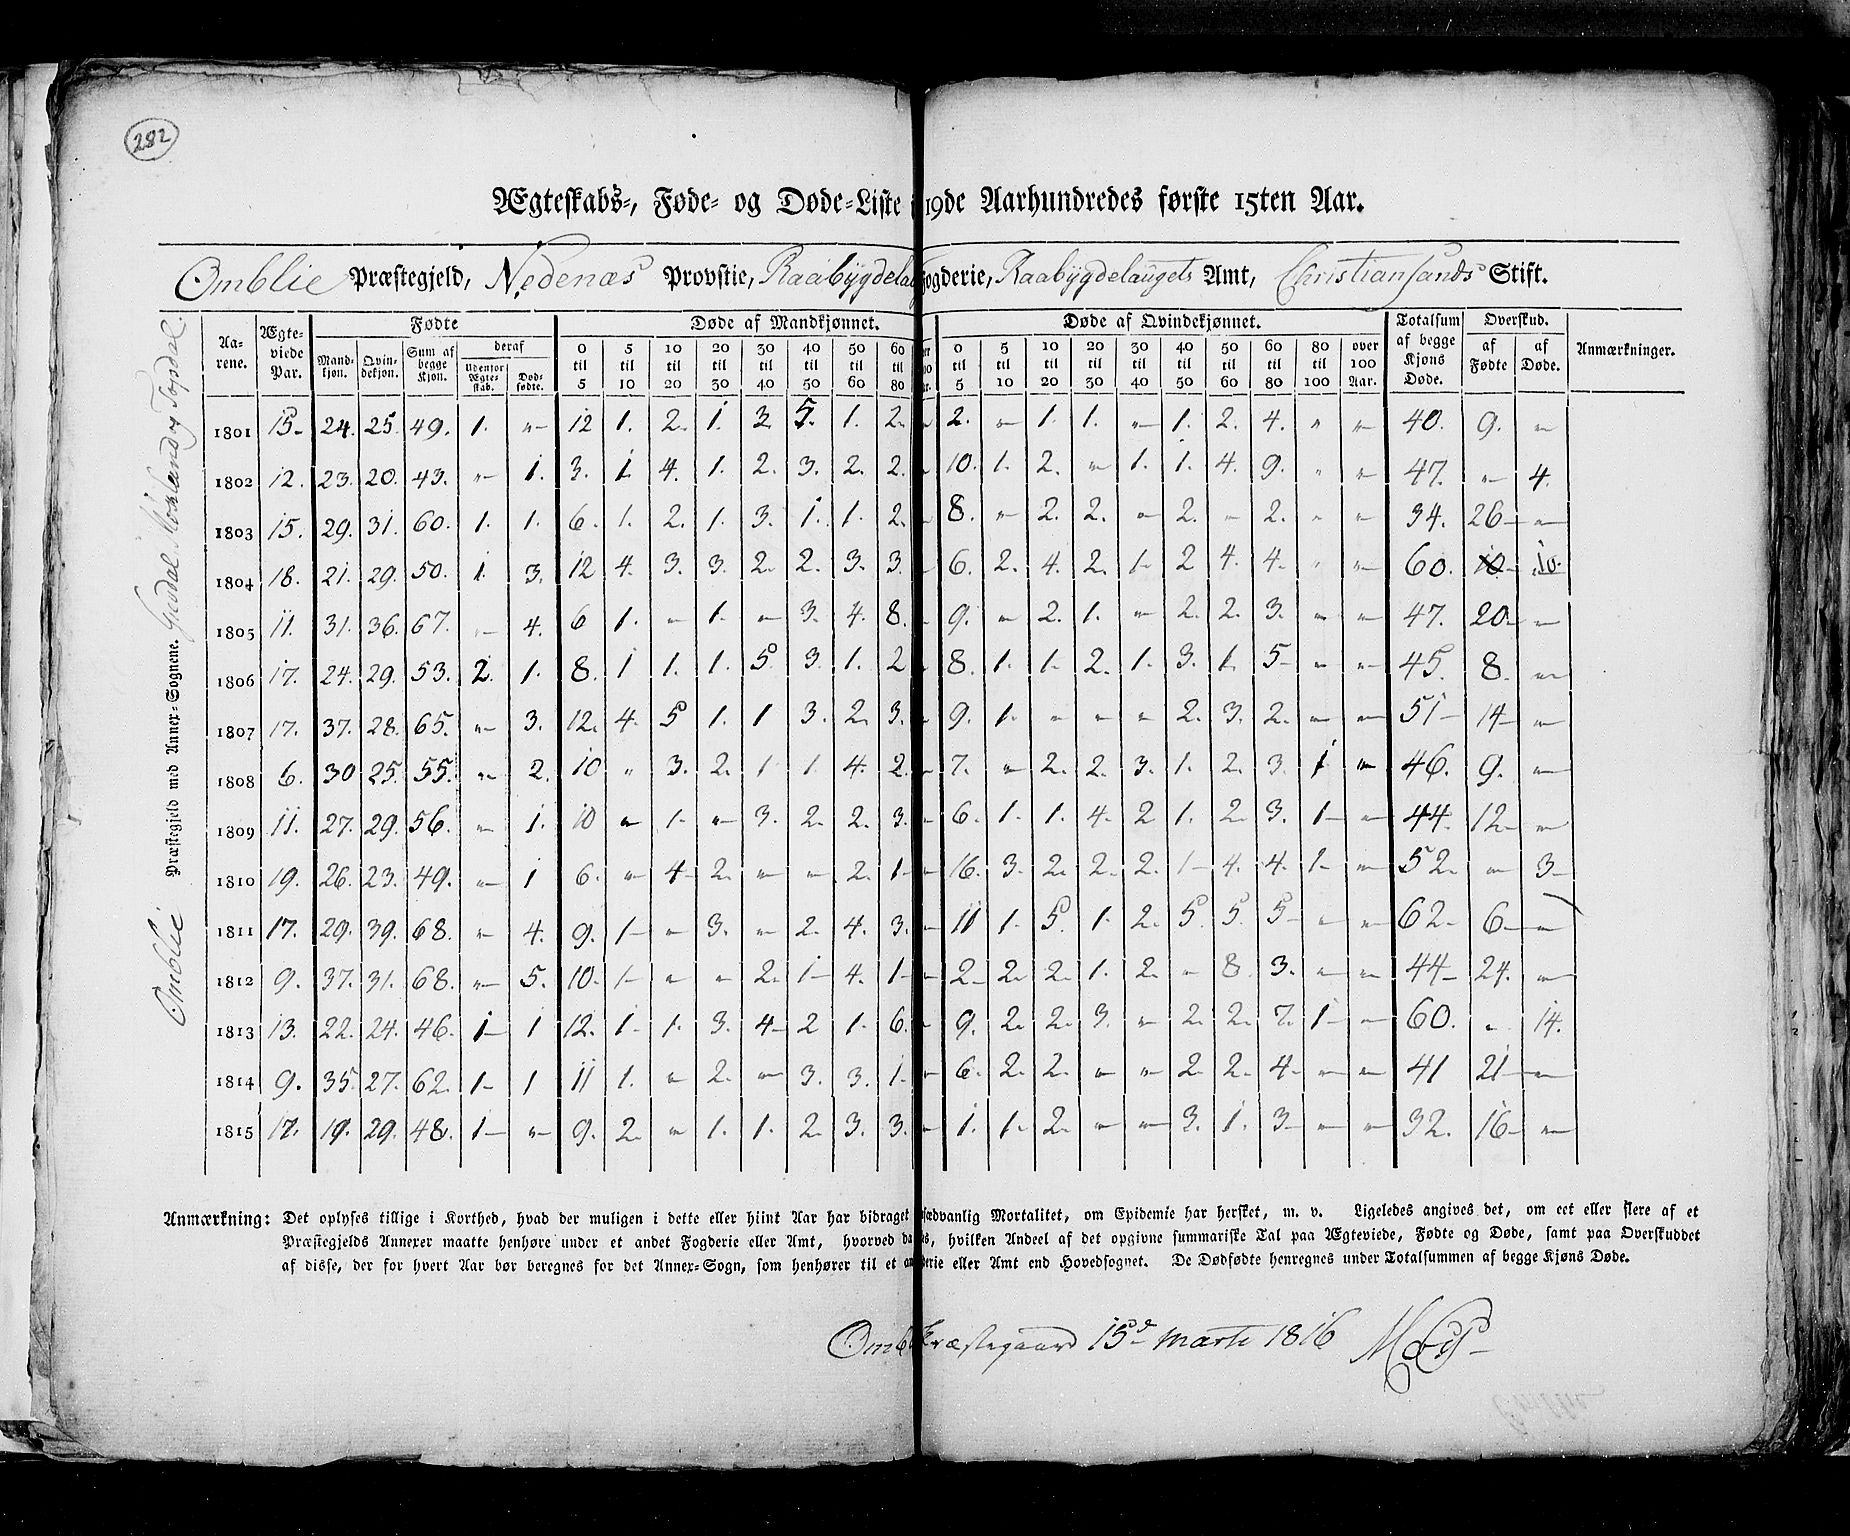 282
Ægteskabs-, Føde- og Døde-Liste i 19de Aarhundredes første 15ten Aar.
Omblie Præstegjeld, Nedenæs Provstie, Raabÿgdelau Fogderie, Raabÿgdelaugets Amt, Christiansands Stift.
Omblie Præstegjeld med Annex-Sognene. Giødal Mosland og Topdal.
Aa-rene. Ægte-viede Par. Fødte Døde af Mandkjønnet. Døde af Qvindekjønnet. Totalsum af begge Kjøns Døde. Overskud. Anmærkninger.
Mand-kjøn. Qvin-dekjøn. Sum af begge Kjøn. deraf Udenfor Ægte-skab. Død-fødte. 0 til 5 5 til 10 10 til 20 20 til 30 30 til 40 40 til 50 50 til 60 60 til 80 0 til 5 5 til 10 10 til 20 20 til 30 30 til 40 40 til 50 50 til 60 60 til 80 80 til 100 over 100 Aar. af Fødte af Døde.
1801 15- 24. 25. 49. 1. „- 12 1. 2. 1. 3. 5. 1. 2. „ 2. „ 1. 1. „ 1. 2. 4. „ „ 40. 9. „
1802 12. 23. 20. 43. „ 1. 3. 1 4. 1. 2. 3. 2. 2. „ 10. 1. 2. „ 1. 1. 4. 9. „ „ 47. „ 4.
1803 15. 29. 31. 60. 1. 1. 6. 1. 2. 1. 3. 1. 1. 2. „ 8. „ 2. 2. „ 2. „ 2. „ „ 34. 26- „
1804 18. 21. 29. 50. 1. 3. 12 4. 3. 3. 2. 2. 3. 3. „ 6. 2. 4. 2. 1. 2 4. 4. „ „ 60. 10 10.
1805 11. 31. 36. 67. „ 4. 6 1. „ 1. „ 3. 4. 8. „ 9. „ 2. 1. „ 2. 2. 3. „ „ 47. 20- „
1806 17. 24. 29. 53. 2. 1. 8. 1 1. 1. 5. 3. 1. 2 „ 8. 1. 1. 2. 1. 3. 1. 5- „ „ 45. 8. „
1807 17. 37. 28. 65. „ 3. 12. 4. 5 1. 1 3. 2. 3. „ 9. 1. „ „ „ 2. 3. 2. „ „ 51- 14- „
1808 6. 30 25. 55. „ 2. 10 „ 3. 2. 1 1. 4. 2. „ 7. „ 2. 2. 3. 1. 2. 3. 1 „ 46. 9. „
1809 11. 27. 29. 56. „ 1. 10 „ 1. „ 3. 2. 2. 3. „ 6. 1. 1. 4. 2 1. 2. 3. 1- „ 44. 12- „
1810 19. 26. 23. 49. „ 1 6. „ 4- 2. „ „ 2. 1- „ 16. 3. 2. 2. 2. 1- 4. 4. 1- „ 52. „ 3-
1811 17. 29. 39. 68. „ 4. 9. 1- „ 3. „ 2. 4. 3. „ 11 1. 5. 1. 2. 5. 5. 5- „ „ 62- 6- „
1812 9. 37. 31. 68. „ 5. 10. 1- „ „ 2. 1- 4. 1- „ 2- 2. 2. 1. 2. „ 8. 3. „ „ 44- 24. „
1813 13. 22. 24. 46. 1- 1 12. 1- 1. 3. 4- 2 1. 6. „ 9. 2. 2. 3. „ 2. 2. 7. 1- „ 60. „ 14.
1814 9. 35. 27. 62. 1- 1 11 1. „ 2. „ 3. 3. 1- „ 6. 2. 2. „ „ 2. 2. 4- „ „ 41 21- „
1815 17. 19. 29. 48. 1- „ 9. 2. „ 1. 1. 2. 3. 3. „ 1. 1. 2. „ „ 3. 1. 3- „ „ 32. 16- „
Anmærkning: Det oplyses tillige i Korthed, hvad der muligen i dette eller hiint Aar har bidraget sædvanlig Mortalitet, om Epidemie har hersket, m. v. Ligeledes angives det, om eet eller flere af et
Præstegjelds Annexer maatte henhøre under et andet Fogderie eller Amt, hvorved da s, hvilken Andeel af det opgivne summariske Tal paa Ægteviede, Fødte og Døde, samt paa Overskuddet
af disse, der for hvert Aar bør beregnes for det Annex-Sogn, som henhører til et an derie eller Amt end Hovedsognet. De Dødfødte henregnes under Totalsummen af begge Kjøns Døde.
Omb Præstegaard 15d Marti 1816